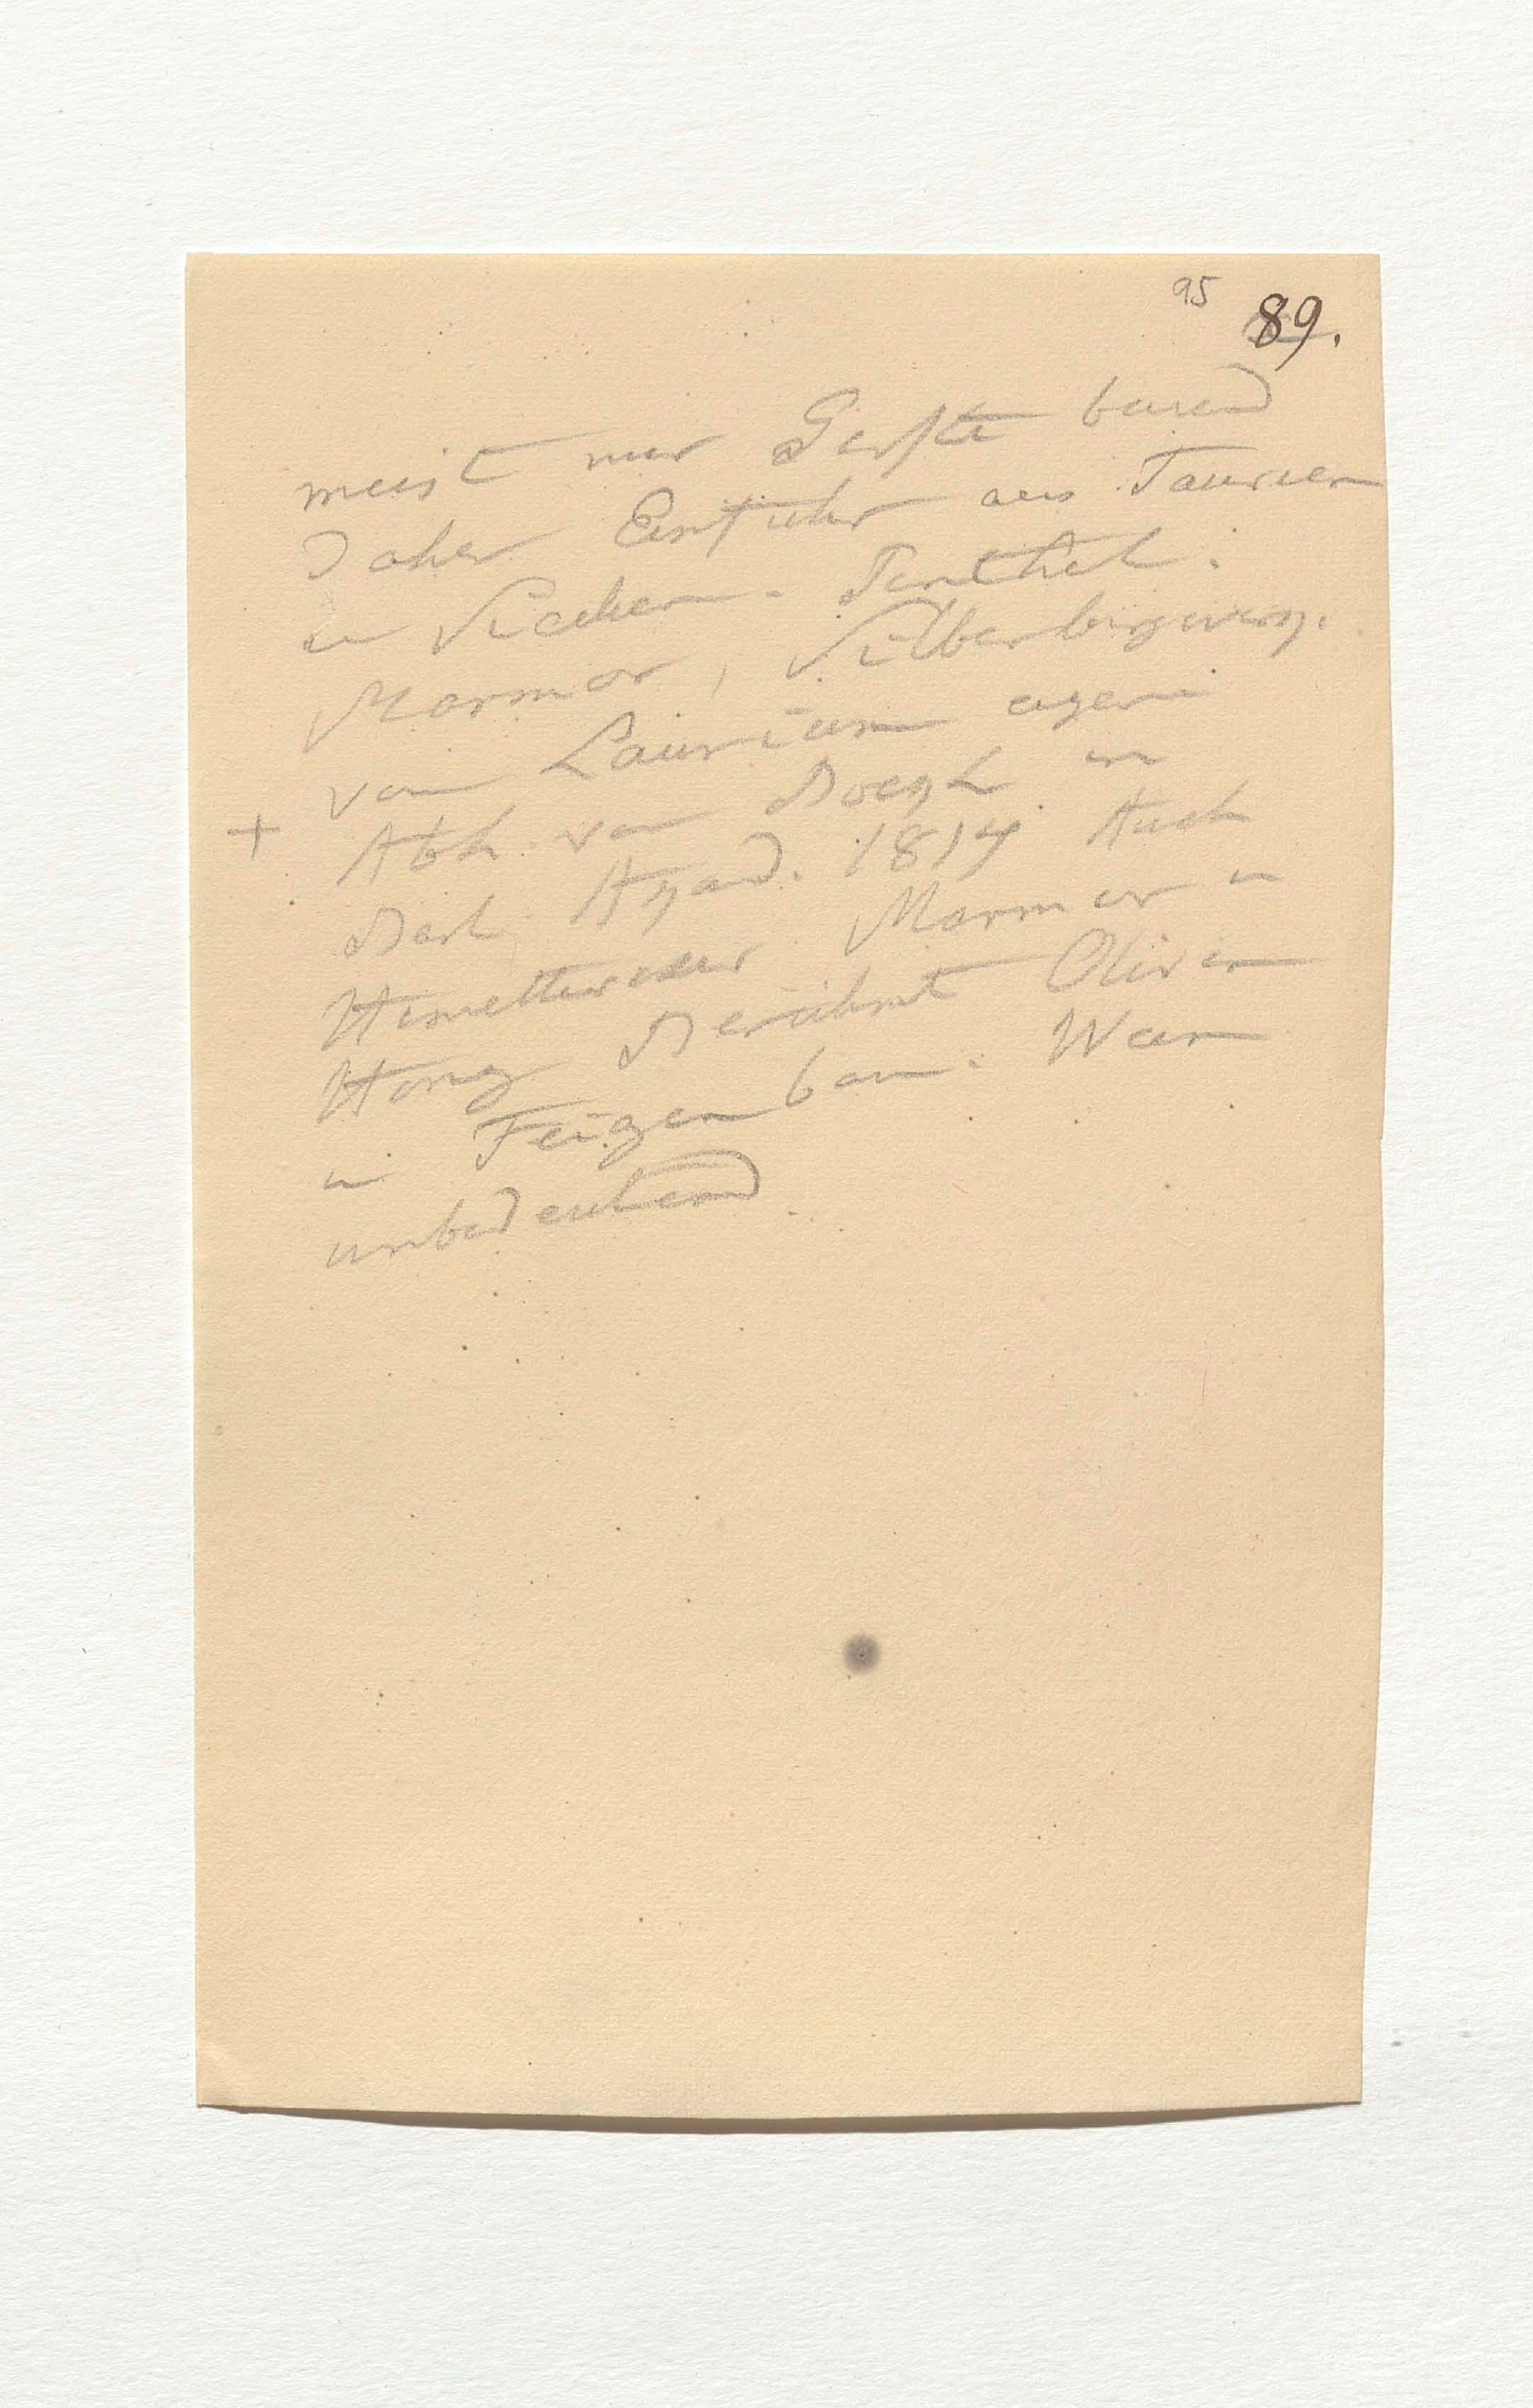 95 89.
meist nur Gerste bauend
daher Einfuhr aus Taurien
u Sicilien. Penthel.
Marmor, Silberbergwerg.
von Laurium eigen
+ Abh. von Boegh in
Berl. Agad. 1814 Auch
Hymettischer Marmor u
Honig Berühmt Oliven
u Feigenbau. Wein
unbedeutend.